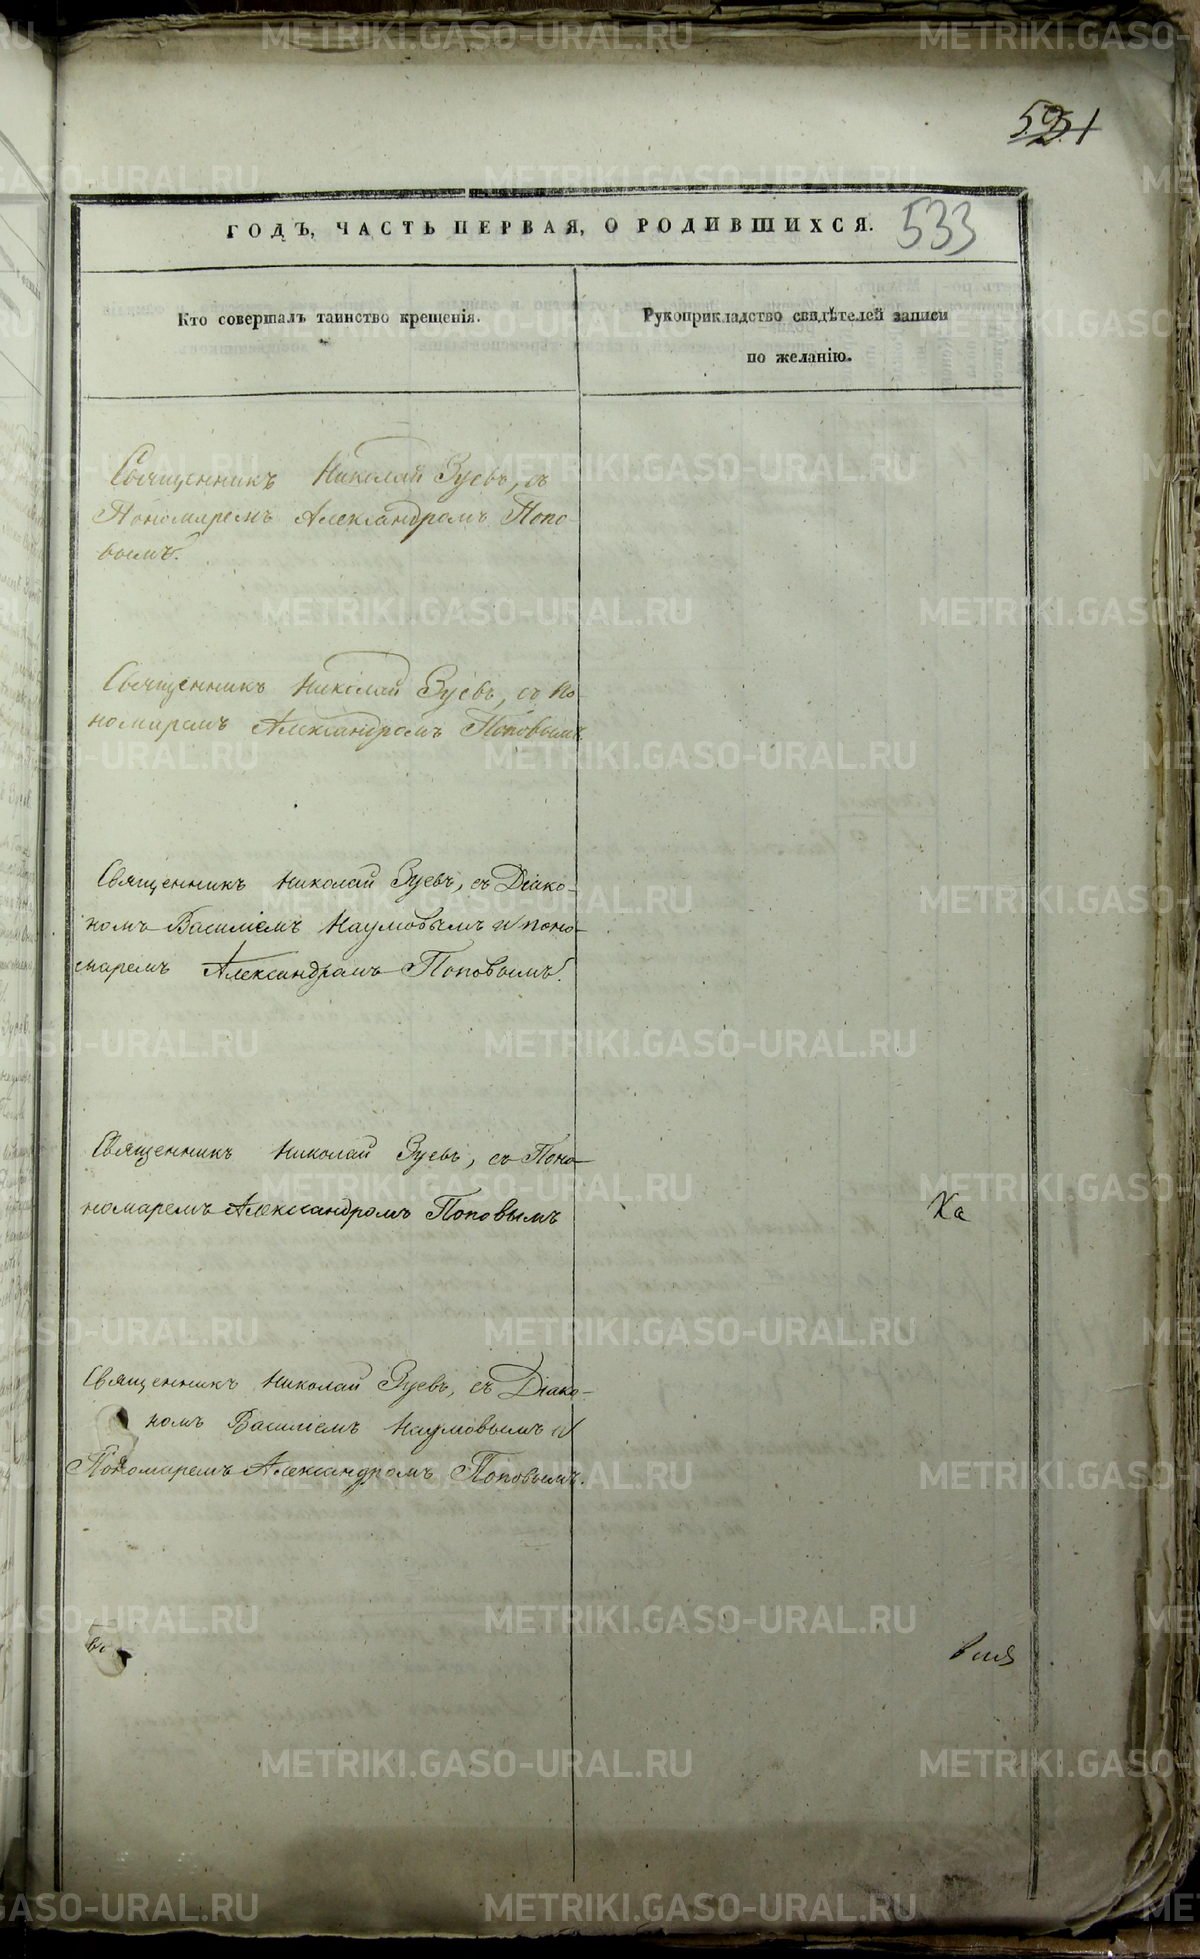 533
ГОДЪ, ЧАСТЬ ПЕРВАЯ, О РОДИВШИХСЯ.
Кто совершалъ таинство крещенія.
Рукоприкладство свидѣтелей записи
по желанію.
Священникъ Николай Зуевъ, съ
Пономаремъ Александромъ Попо-
вымъ.
Священникъ Николай Зуевъ, съ По-
номаремъ Александромъ Поповымъ
Священникъ Николай Зуевъ, съ Діако-
номъ Василіемъ Наумовымъ и поно-
маремъ Александромъ Поповымъ.
Священникъ Николай Зуевъ, съ Поно-
номаремъ Александромъ Поповымъ
Ка
Священникъ Николай Зуевъ, съ Діако-
номъ Василіемъ Наумовымъ и
Пономаремъ Александромъ Поповымъ.
METRIKI.GASO-URAL.RU